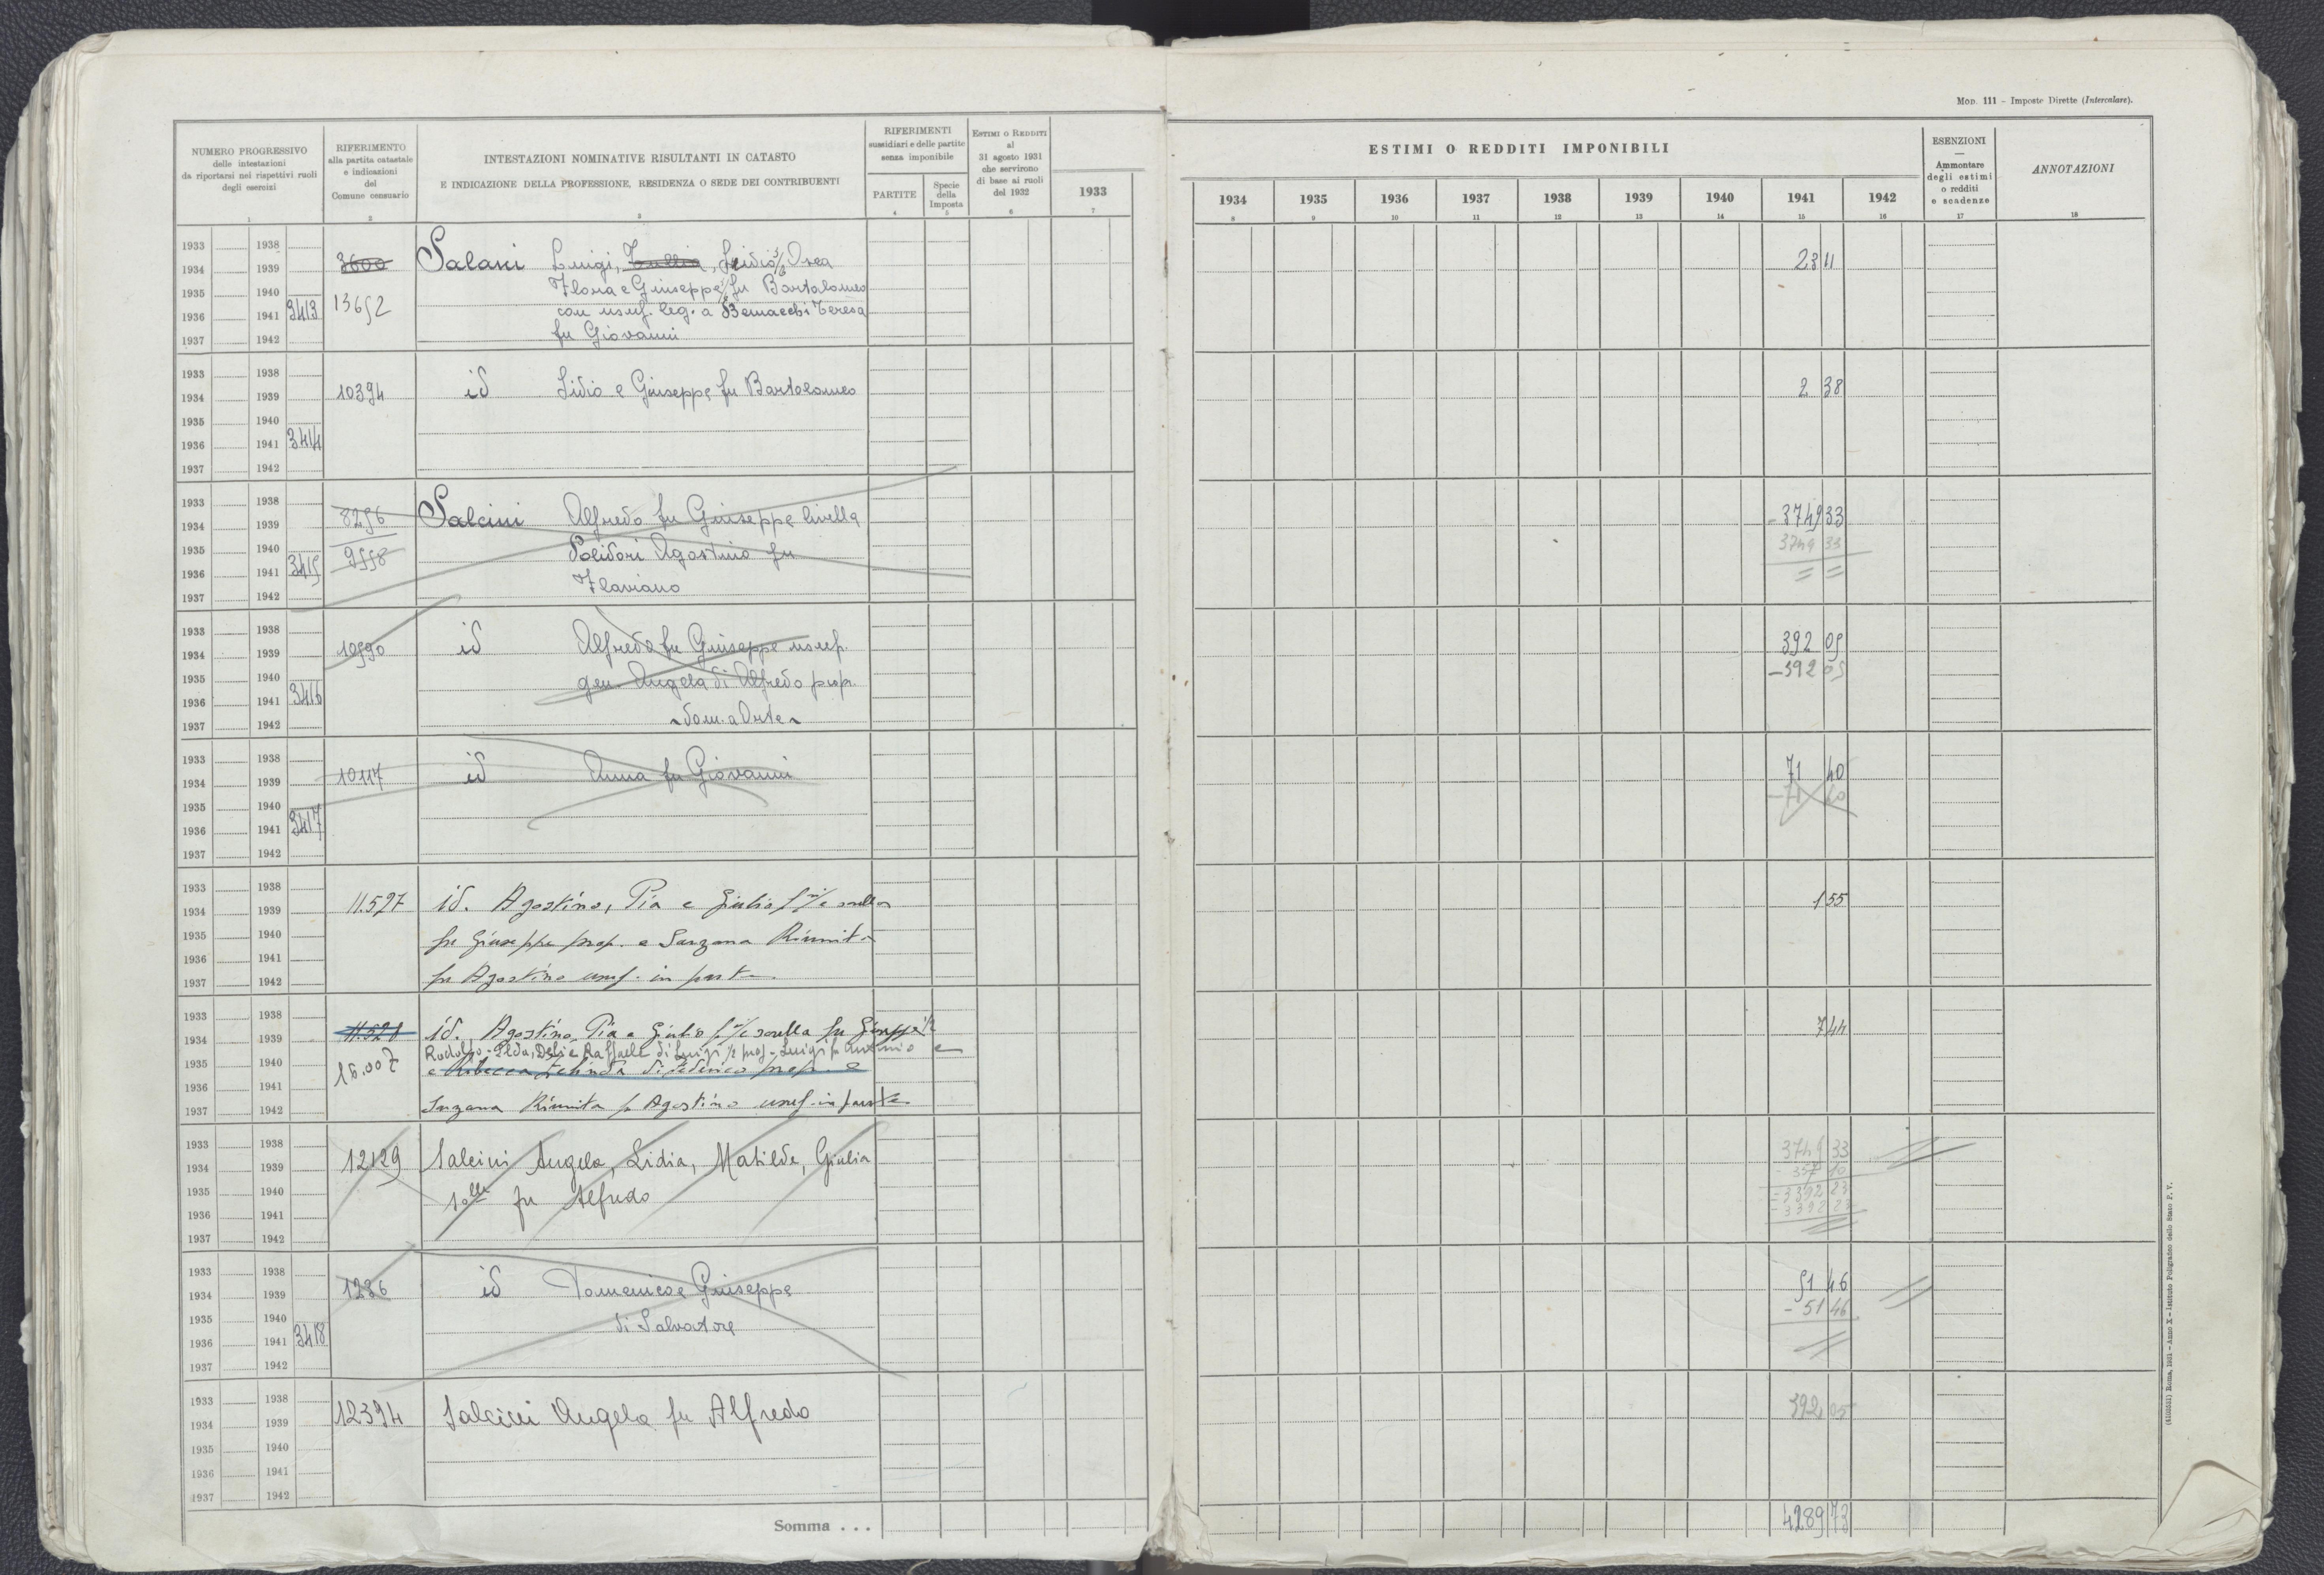 MOD. 111 - Imposte Dirette (Intercalare).
NUMERO PROGRESSIVO
delle intestazioni
da riportarsi nei rispettivi ruoli
degli esercizi
1
RIFERIMENTO
alla partita catastale
e indicazioni
del
Comune censuario
2
INTESTAZIONI NOMINATIVE RISULTANTI IN CATASTO
E INDICAZIONE DELLA PROFESSIONE, RESIDENZA O SEDE DEI CONTRIBUENTI
3
RIFERIMENTI
sussidiari e delle partite
senza imponibile
PARTITE
4
Specie
della
Imposta
5
ESTIMI O REDDITI
al
31 agosto 1931
che servirono
di base ai ruoli
del 1932
6
1933
7
ESTIMI O REDDITI IMPONIBILI
1934 1935 1936 1937 1938 1939 1940 1941 1942
8 9 10 11 12 13 14 15 16
ESENZIONI
Ammontare
degli estimi
o redditi
e scadenze
17
ANNOTAZIONI
18
1933 1938
1934 1939 3600 Salani Luigi, Tullia, Lidio Osea 23 11
1935 1940 Flora e Giuseppe fu Bartolomeo
1936 1941 3413 13652 con usuf. leg. a Bernacchi Teresa
1937 1942 fu Giovanni
1933 1938
1934 1939 10394 id Lidio e Giuseppe fu Bartolomeo 2 38
1935 1940
1936 1941 3414
1937 1942
1933 1938
1934 1939 8256 Salcini Alfredo fu Giuseppe livell. a 3749 33
1935 1940 9558 Polidori Agostino fu 3749 33
1936 1941 3415 Flaviano = =
1937 1942
1933 1938
1934 1939 10590 id Alfredo fu Giuseppe usuf. 392 05
1935 1940 gen. Angela di Alfredo prop. - 392 05
1936 1941 3416
1937 1942 dom. a Orte
1933 1938
1934 1939 10117 id Anna fu Giovanni 71 40
1935 1940 - 71 40
1936 1941 3417
1937 1942
1933 1938
1934 1939 11.527 id. Agostino, Pia e Giulio f.lli e sorella 1 55
1935 1940 fu Giuseppe prop. e Sarzana Riunita
1936 1941
1937 1942 fu Agostino usuf. in parte
1933 1938
1934 1939 11.528 id. Agostino, Pia e Giulio f.lli e sorella fu Giuseppe 1/2 7 44
1935 1940 Rodolfo - Elda, Raffaele di Luigi 1/2 prop - Luigi fu Antonio e
1936 1941 16.007 e Rebecca di Federico prop. e
1937 1942 Sarzana Riunita fu Agostino usuf. in parte
1933 1938
1934 1939 12129 Salcini Angela, Lidia, Matilde, Giulia 3749 33
- 357 10
1935 1940 s.lle fu Alfredo = 3392 23
1936 1941 - 3392 23
1937 1942
1933 1938
1934 1939 1286 id Domenico e Giuseppe 51 46
1935 1940 di Salvatore - 51 46
1936 1941 3418
1937 1942
1933 1938
1934 1939 12394 Salcini Angela fu Alfredo 392 05
1935 1940
1936 1941
1937 1942
Somma . . . 4289 73
(4100551) Roma, 1931 - Anno X - Istituto Poligrafico dello Stato P. V.